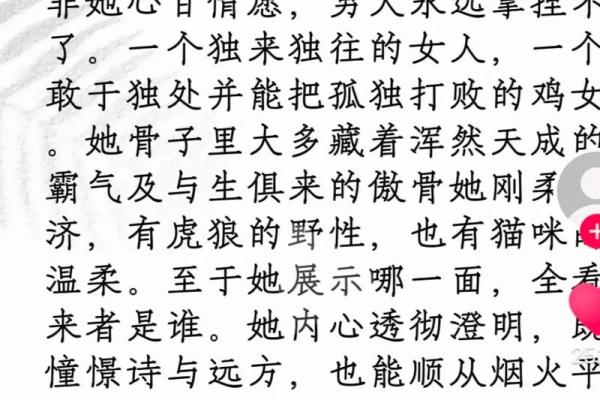 非她心甘情愿，男人永远拿捏不
了。一个独来独往的女人，一个
敢于独处并能把孤独打败的鸡女
。她骨子里大多藏着浑然天成的
霸气及与生俱来的傲骨她刚柔
济，有虎狼的野性，也有猫咪的
温柔。至于她展示哪一面，全看
来者是谁。她内心透彻澄明，既
憧憬诗与远方，也能顺从烟火平